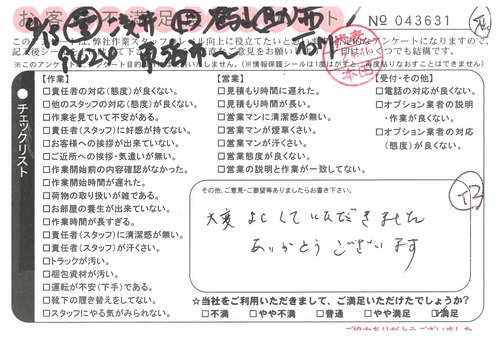 お客様不満足アンケート
№ 043631
このアンケートは、弊社作業スタッフのレベル向上に役立てたいと
※このアンケート
(※情報保護シールは1度はがすと、再度貼りなおすことはできません)
チェックリスト
【作業】
□責任者の対応(態度)が良くない。
□他のスタッフの対応(態度)が良くない。
□作業を見ていて不安がある。
□責任者(スタッフ)に好感が持てない。
□お客様への挨拶が出来ていない。
□ご近所への挨拶・気遣いが無い。
□作業開始前の内容確認がなかった。
□作業開始時間が遅れた。
□荷物の取り扱いが雑である。
□お部屋の養生が出来ていない。
□作業時間が長すぎる。
□責任者(スタッフ)に清潔感が無い。
□責任者(スタッフ)が汗くさい。
□トラックが汚い。
□梱包資材が汚い。
□運転が不安(下手)である。
□靴下の履き替えをしてない。
□スタッフにやる気がみられない。
【営業】
□見積もり時間に遅れた。
□見積もり時間が長い。
□営業マンに清潔感が無い。
□営業マンが煙草くさい。
□営業マンが汗くさい。
□営業態度が良くない。
□営業の説明と作業が一致してない。
【受付・その他】
□電話の対応が良くない。
□オプション業者の説明・作業が良くない。
□オプション業者の対応(態度)が良くない。
その他、ご意見・ご要望等ありましたらお書き下さい。
大変 よくしていただきました
ありがとうございます
☆当社をご利用いただきまして、ご満足いただけたでしょうか?
□不満 □やや不満 □普通 □やや満足 ☑満足
ご協力ありがとうございました